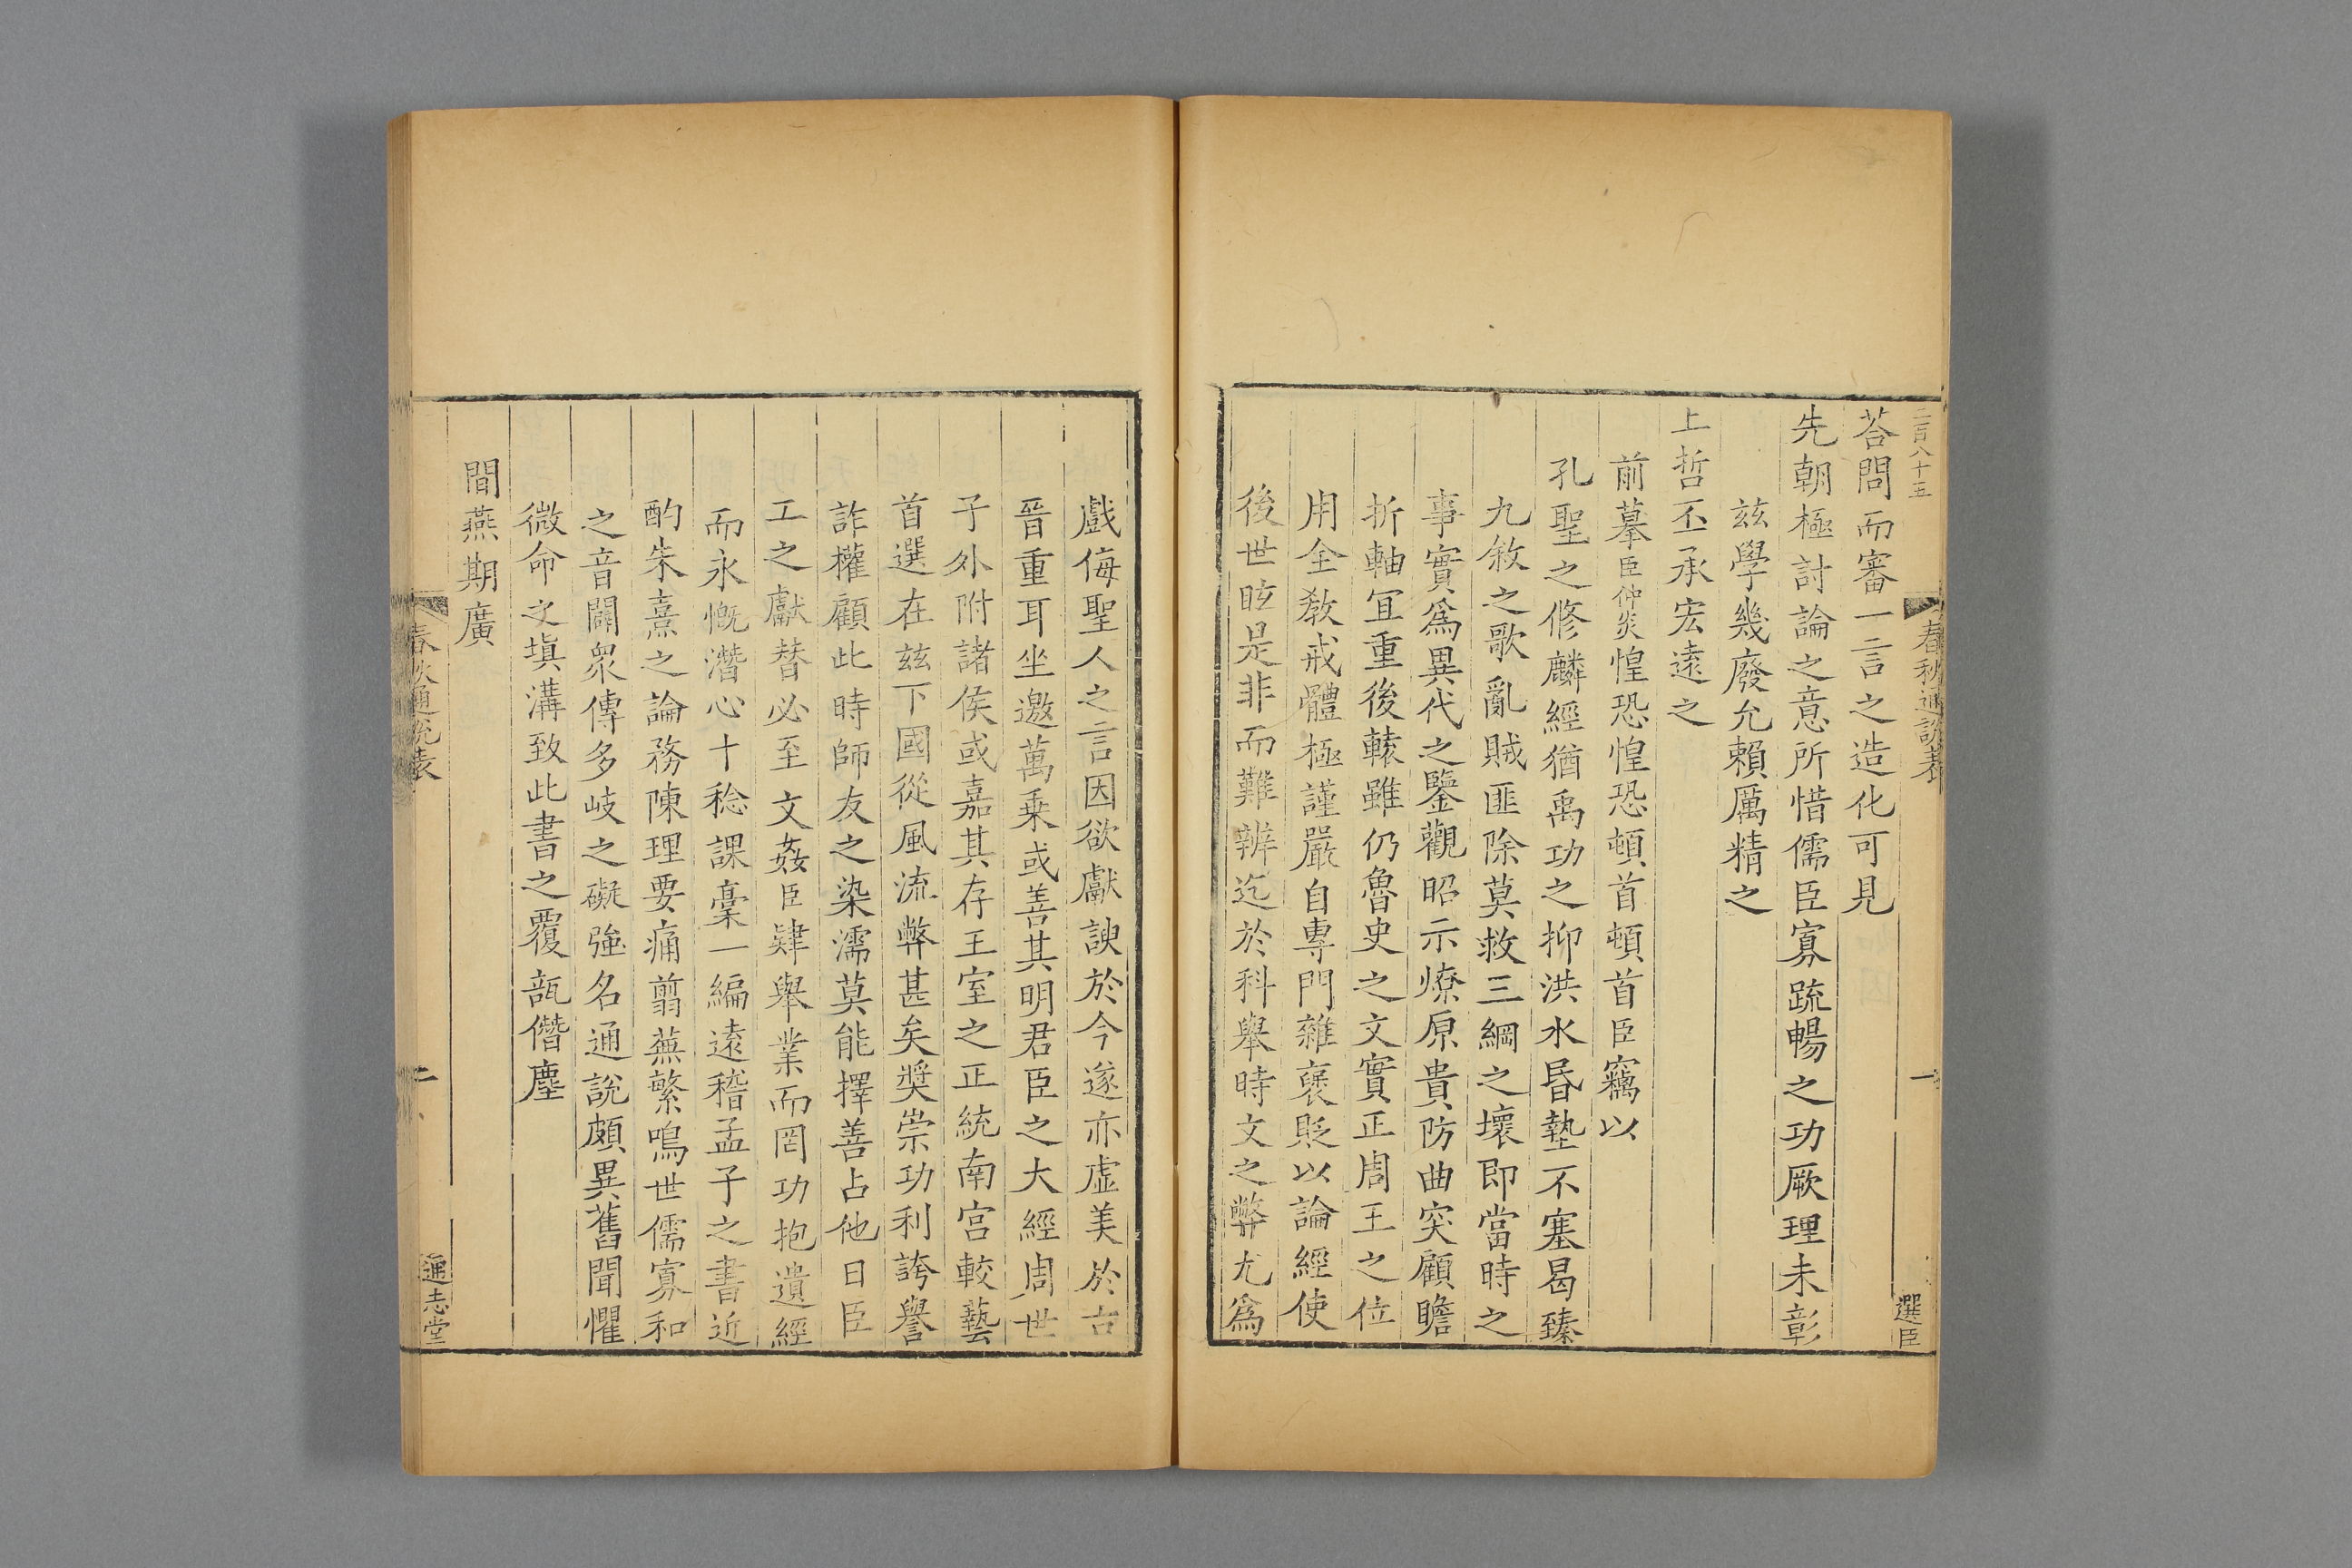 二百八十五
春秋通說表
一
選臣
荅問而審一言之造化可見
先朝極討論之意所惜儒臣寡疏暢之功厥理未彰
兹學幾廢允賴厲精之
上哲丕承宏遠之
前摹臣仲炎惶恐惶恐頓首頓首臣竊以
孔聖之修麟經猶禹功之抑洪水昬墊不塞曷臻
九敘之歌亂賊匪除莫救三綱之壞即當時之
事實爲異代之鑒觀昭示燎原貴防曲突顧瞻
折軸宜重後轅雖仍魯史之文實正周王之位
用全教戒體極謹嚴自專門雜襃貶以論經使
後世眩是非而難辨迄於科舉時文之弊尤爲
戲侮聖人之言因欲獻諛於今遂亦虛美於古
晉重耳坐邀萬乗或善其明君臣之大經周世
子外附諸侯或嘉其存王室之正統南宫較藝
首選在兹下國從風流弊甚矣奬崇功利誇譽
詐權顧此時師友之染濡莫能擇善占他日臣
工之獻替必至文姦臣肄舉業而罔功抱遺經
而永慨潛心十稔課稾一編遠稽孟子之書近
酌朱熹之論務陳理要痛翦蕪繁鳴世儒寡和
之音闢衆傳多岐之礙強名通說頗異舊聞懼
微命之塡溝致此書之覆瓿僭塵
間燕期廣
春秋通說表
二
通志堂